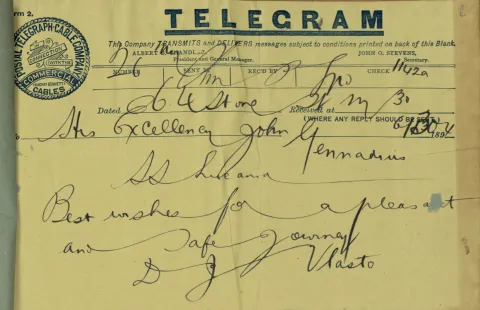 rm 2.
TELEGRAM
POSTAL TELEGRAPH-CABLE COMPANY
COMMERCIAL CABLES
This Company TRANSMITS and DELIVERS messages subject to conditions printed on back of this Blank.
ALBERT CHANDL
JOHN O. STEVENS,
President and General Manager.
Secretary.
NUMBER SENT REC'D BY CHECK
26 1142a
Dated 64 Stone St NY 30
Received at
(WHERE ANY REPLY SHOULD BE SENT.)
189
His Excellency John Gennadius
SS
Best wishes for a pleasant
and safe journey
D J Vlasto